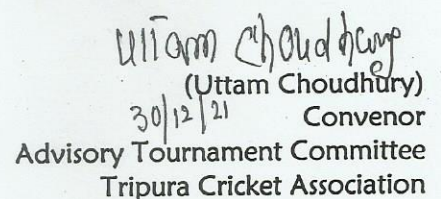 Uttam Choudhury
(Uttam Choudhury)
30/12/21 Convenor
Advisory Tournament Committee
Tripura Cricket Association